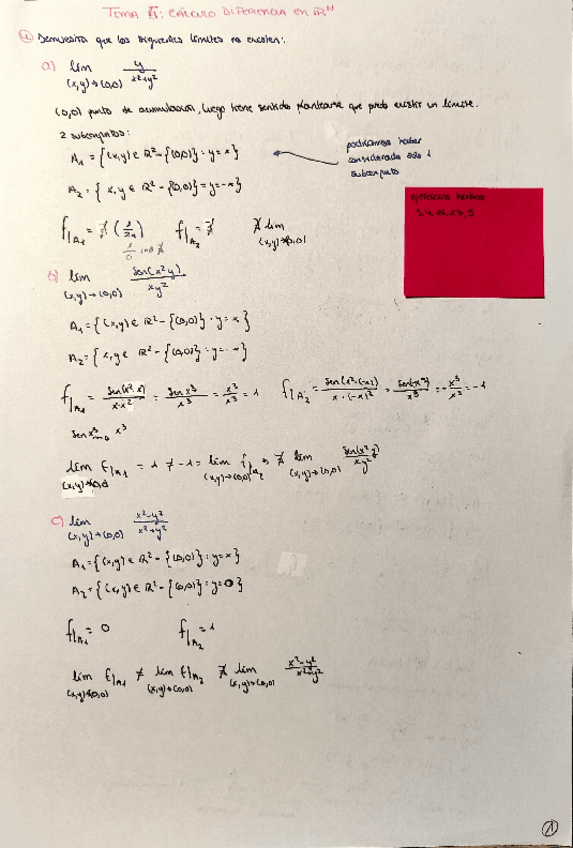 TEMA II: CÁLCULO DIFERENCIA EN IRᴺ
Demuestra que los siguientes límites no existen:
a) lim (x,y)→(0,0) y/(x²+y²)
(0,0) punto de acumulación, luego tiene sentido plantearse que pueda existir un límite.
2 subconjuntos:
A₁ = {(x,y) ∈ ℝ² - {(0,0)} : y = x}
podríamos haber
considerado solo 1
subconjunto
A₂ = {x,y ∈ ℝ² - {(0,0)} = y = -x}
ejercicios hechos
f|A₁ = ∄ (1/2x) f|A₂ = ∄ ∄ lim (x,y)→(0,0)
b) lim (x,y)→(0,0) sen(x²y)/xy²
A₁ = {(x,y) ∈ ℝ² - {(0,0)} : y = x}
A₂ = {x,y ∈ ℝ² - {(0,0)} : y = -x}
f|A₁ = sen(x²·x)/x·x² = sen x³/x³ = x³/x³ = 1 f|A₂ = sen(x²·(-x))/x·(-x)² = sen(-x³)/x³ = -x³/x³ = -1
sen x³ ≈₀ x³
lim (x,y)→(0,0) f|A₁ = 1 ≠ -1 = lim (x,y)→(0,0) f|A₂ ⇒ ∄ lim (x,y)→(0,0) sen(x²y)/xy²
c) lim (x,y)→(0,0) x²-y²/x²+y²
A₁ = {(x,y) ∈ ℝ² - {(0,0)} : y = x}
A₂ = {(x,y) ∈ ℝ² - {(0,0)} : y = 0}
f|A₁ = 0 f|A₂ = 1
lim (x,y)→(0,0) f|A₁ ≠ lim (x,y)→(0,0) f|A₂ ∄ lim (x,y)→(0,0) x²-y²/x²+y²
1